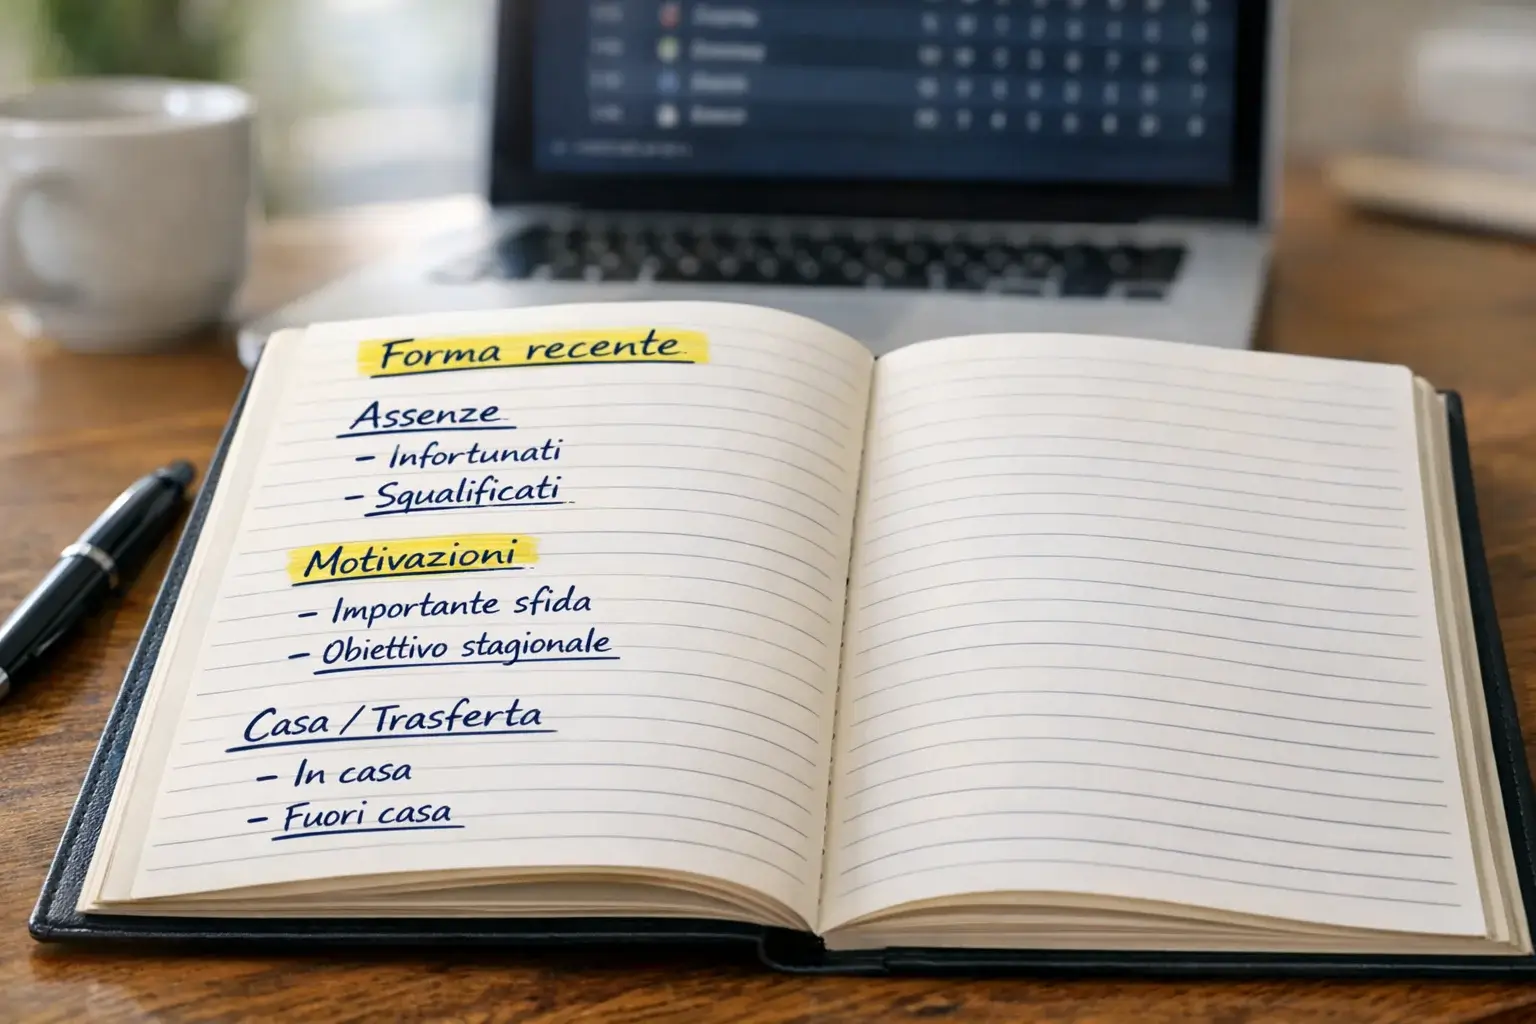 Forma recente
Assenze
- Infortunati
- Squalificati
Motivazioni
- Importante sfida
- Obiettivo stagionale
Casa / Trasferta
- In casa
- Fuori casa